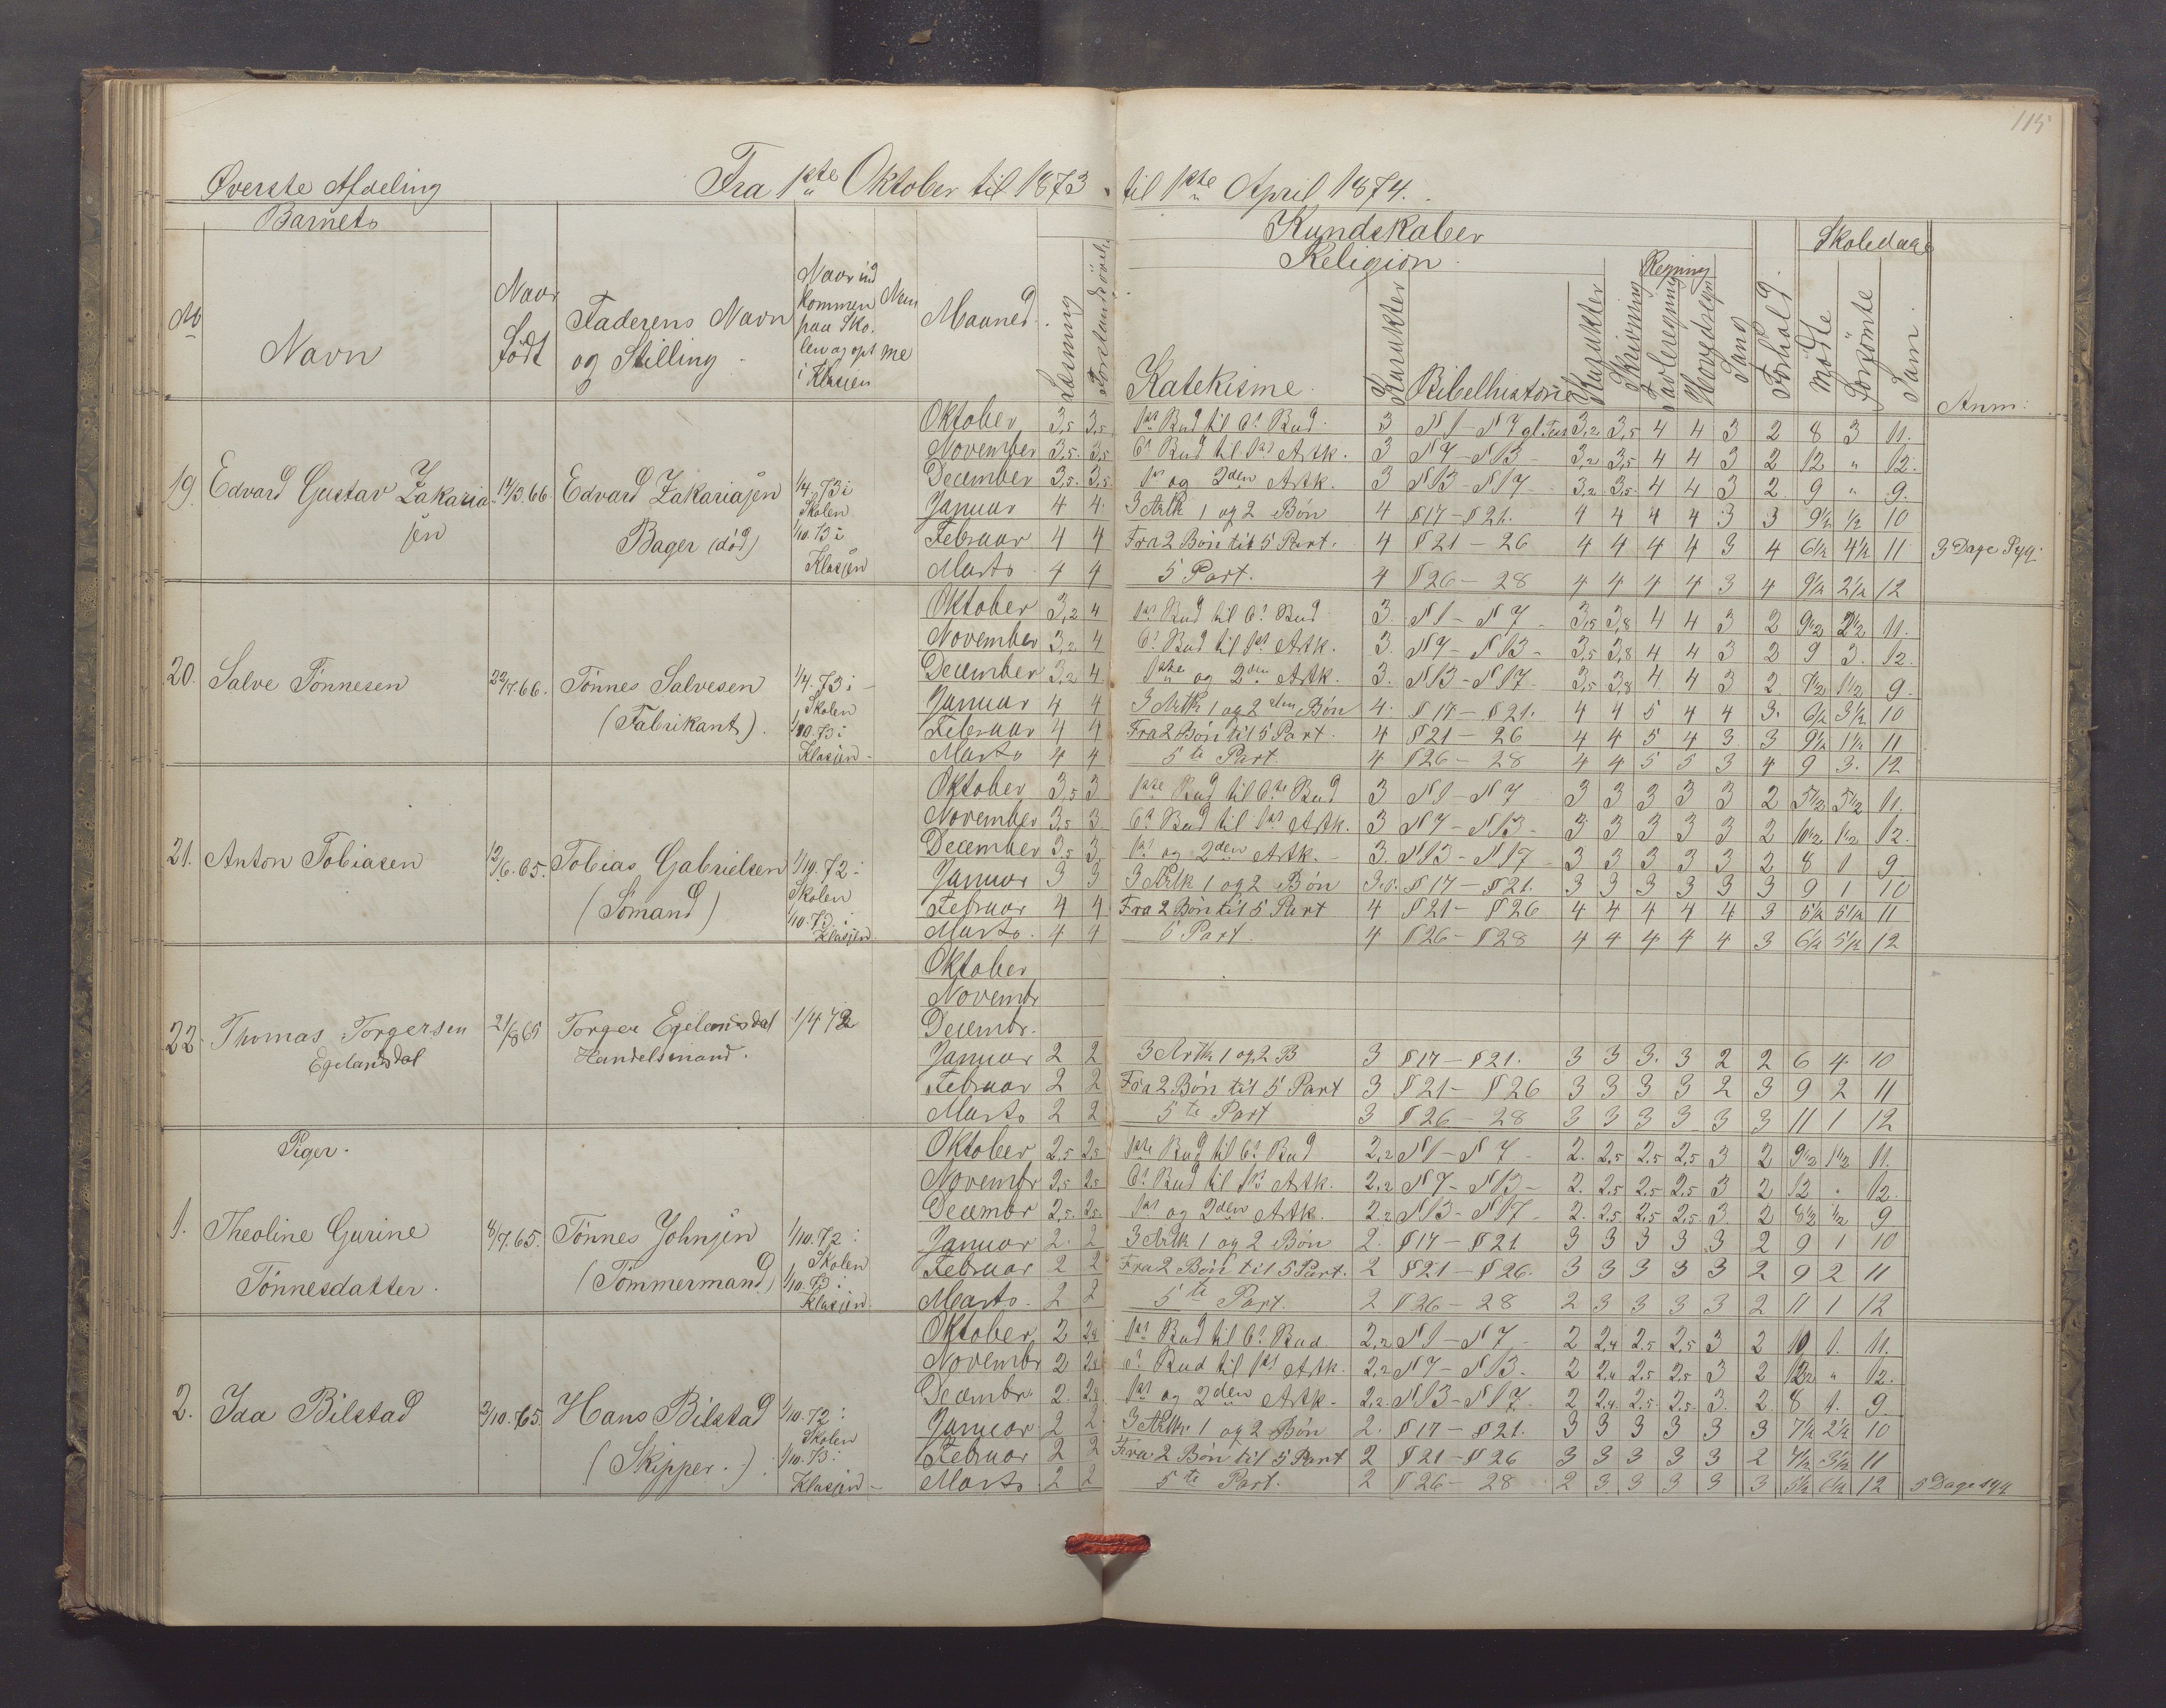 115
Øverste Afdeling Fra 1ste Oktober til 1873 til 1ste April 1874.
Barnets Kundskaber Skoledage
Religion Regning
No Navn Naar Født Faderens Navn og Stilling Naar ind kommen paa Sko. len og opt i Klassen Maaned Læsning Katekisme Karakter Bibelhistorie Karakter Skrivning Tavleregning Hovedregn Sang Forhold Mødte Forsømte Sum Anm:
Oktober 3,5 3,5 1st Bud til 6t Bud 3 § 1 - § 7 gl. Tes 3,2 3,5 4 4 3 2 8 3 11.
November 3,5 3,5 6t Bud til 1st Artk. 3 § 7 - § 13 - 3,2 3,5 4 4 3 2 12 " 12.
19. Edvard Gustav Zakaria- 14/3.66. Edvard Zakariasen 1/4.73 i December 3,5 3,5 1st og 2den Artk. 3 § 13 - § 17 - 3,2 3,5 4 4 3 2 9 " 9.
sen Skolen Januar 4 4 3 Artk 1 og 2 Bøn 4 § 17 - § 21. 4 4 4 4 3 3 9½ ½ 10
Bager (død) 1/10.73 i Februar 4 4 Fra 2 Bøn til 5 Part. 4 § 21 - 26 4 4 4 4 3 4 6½ 4½ 11 3 Dage Syg.
Klassen Marts 4 4 5 Part. 4 § 26 - 28 4 4 4 4 3 4 9½ 2½ 12
Oktober 3,2 4 1st Bud til 6t Bud 3. § 1 - § 7 - 3,5 3,8 4 4 3 2 9½ 2½ 11.
November 3,2 4 6t Bud til 1st Artk. 3. § 7 - § 13 - 3,5 3,8 4 4 3 2 9 3. 12.
20. Salve Tönnesen 22/7.66. Tönnes Salvesen 1/4.73 i December 3,2 4 1ste og 2den Artk. 3. § 13 - § 17 - 3,5 3,8 4 4 3 2 7½ 1½ 9.
(Fabrikant). Skolen Januar 4 4 3 Artk 1 og 2den Bøn 4. § 17 - § 21. 4 4 5 4 4 3. 6½ 3½ 10
1/10.73 i Februar 4 4 Fra 2 Bøn til 5 Part. 4 § 21 - 26 4 4 5 4 3 3 9½ 1½ 11
Klassen - Marts 4 4 5te Part. 4 § 26 - 28 4 4 5 5 3 4 9 3. 12
Oktober 3,5 3 1ste Bud til 6te Bud 3 § 1 - § 7 3 3 3 3 3 2 5½ 5½ 11.
November 3,5 3 6t Bud til 1st Artk. 3 § 7 - § 13 - 3 3 3 3 3 2 10½ 1½ 12.
21. Anton Tobiasen 12/6.65. Tobias Gabrielsen 1/10.72 i December 3,5 3 1st og 2den Artk. - 3. § 13 - § 17 - 3 3 3 3 3 2 8 1 9
(Sömand) Skolen Januar 3 3 3 Artk 1 og 2 Bøn § 17 - § 21. 3 3 3 3 3 3 9 1 10
1/10.73. i Februar 4 4 Fra 2 Bøn til 5 Part 4 § 21 - § 26 4 4 4 4 4 3 5½ 5½ 11
Klassen. Marts. 4 4 5 Part. 4 § 26 - § 28 4 4 4 4 4 3 6½ 5½ 12
Oktober
Novembr
22. Thomas Torgersen 21/8 65 Torger Egelandsdal 1/4 72 Decembr.
Egelandsdal Handelsmand. Januar 2 2 3 Artk 1 og 2 B 3 § 17 - § 21. 3 3 3. 3 2 2 6 4 10
Februar 2 2 Fra 2 Bøn til 5 Part 3 § 21 - § 26 3 3 3 3 2 3 9 2 11
Marts 2 2 5te Part 3 § 26 - 28 3 3 3 3 3 3 11 1 12
Piger. Oktober 2,5 2,5 1ste Bud til 6t Bud 2,2 § 1 - § 7 - 2. 2,5 2,5 2,5 3 2 9½ 1½ 11.
Novembr 2,5 2,5 6t Bud til 1st Artk. 2,2 § 7 - § 13 - 2. 2,5 2,5 2,5 3 2 12 . 12.
1. Theoline Gurine 8/7.65. Tönnes Johnsen 1/10.72 i Decembr 2,5. 2,5. 1st og 2den Artk. 2,2 § 13 - § 17 - 2. 2,5 2,5 2,5. 3. 2 8½ ½ 9
Tönnesdatter. (Tömmermand) Skolen Januar 2. 2 3 Artk 1 og 2 Bøn 2. § 17 - § 21 3 3 3 3 3 2 9 1 10
1/10.73 i Februar 2 2 Fra 2 Bøn til 5 Part. 2 § 21 - § 26. 3 3 3 3 3 2 9 2 11
Klassen. Marts. 2 2 5te Part. 2 § 26 - 28 2 3 3 3 3 2 11 1 12
Oktober 2 2,8 1st Bud til 6t Bud 2,2 § 1 - § 7 - 2 2,4 2,5 2,5 3 2 10 1. 11.
Novembr 2 2,8 6t Bud til 1st Artk. 2,2 § 7 - § 13. 2 2,4 2,5 2,5 3 2 12 " 12.
2. Ida Bilstad 2/10.65. Hans Bilstad 1/10.72 i Decembr. 2. 2,8 1st og 2den Artk - 2,2. § 13 - § 17. 2 2,4. 2,5. 2,5. 3. 2. 8 1. 9
Skolen Januar 2 2 3 Artk. 1 og 2 Bøn 2. § 17 - § 21. 3 3 3 3 3 3 7½ 2½ 10
(Skipper.) 1/10.73 i Februar 2 2 Fra 2 Bøn til 5 Part 2 § 21 - § 26 3 3 3 3 3 2 7½ 3½ 11
Klassen - Marts 2 2 5te Part. 2 § 26 - 28 2 3 3 3 3 3 5½ 6½ 12 5 Dage syg